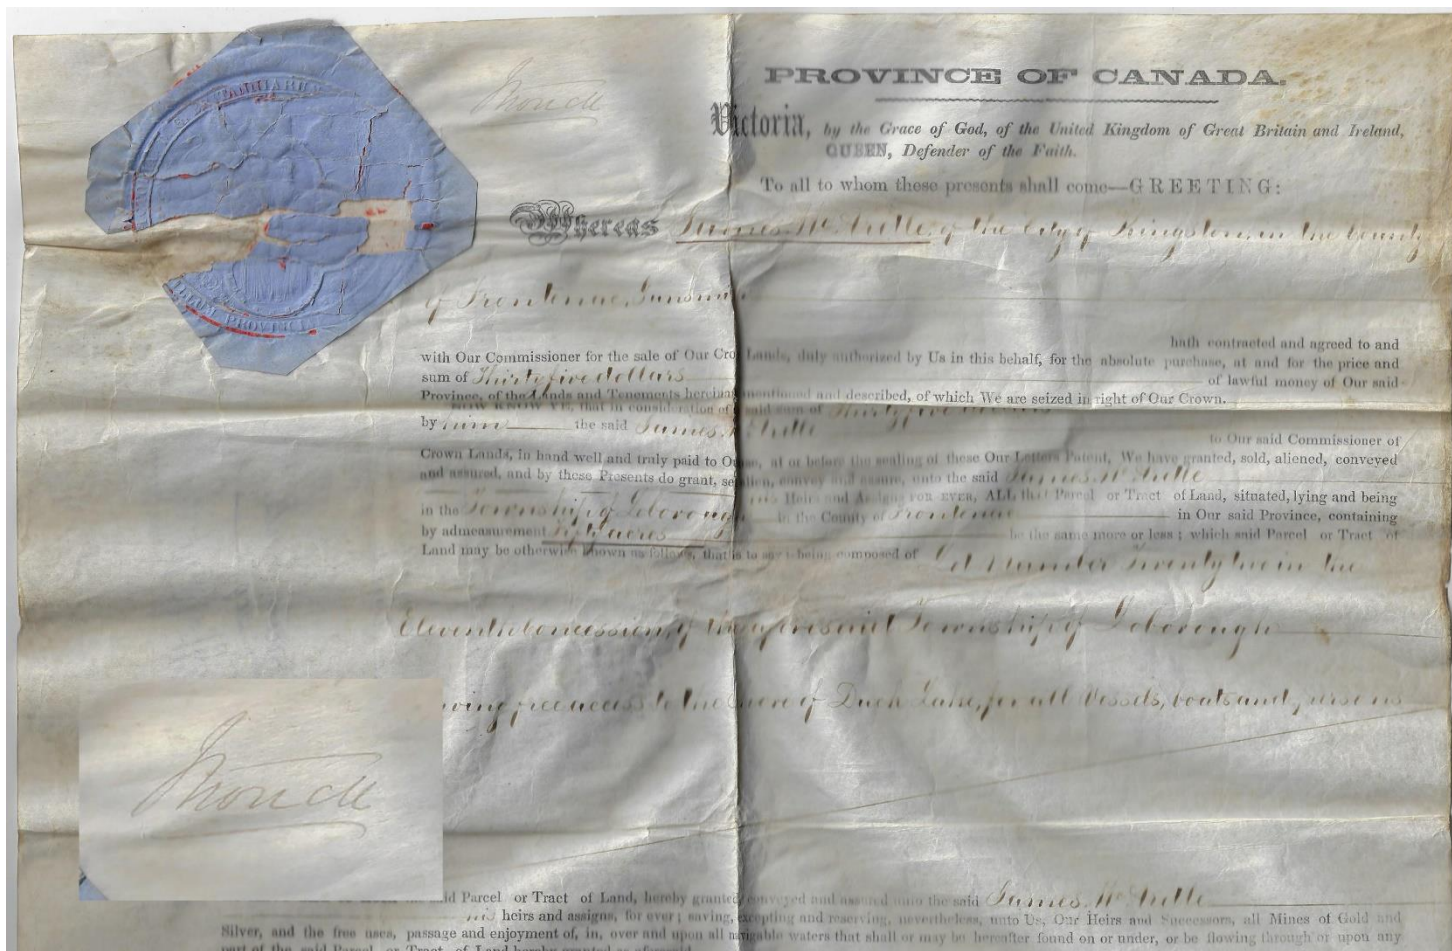 Monck
PROVINCE OF CANADA.
Victoria, by the Grace of God, of the United Kingdom of Great Britain and Ireland,
QUEEN, Defender of the Faith.
To all to whom these presents shall come—GREETING:
Whereas James of the City of Kingston, in the County
of Frontenac, Gunsmith
hath contracted and agreed to and
with Our Commissioner for the sale of Our Crown Lands, duly authorized by Us in this behalf, for the absolute purchase, at and for the price and
sum of Thirty five dollars of lawful money of Our said
Province, of the Lands and Tenements hereinafter mentioned and described, of which We are seized in right of Our Crown.
NOW KNOW YE, that in consideration of said sum of Thirty five
by him the said James
to Our said Commissioner of
Crown Lands, in hand well and truly paid to Our use, at or before the sealing of these Our Letters Patent, We have granted, sold, aliened, conveyed
and assured, and by these Presents do grant, sell, alien, convey and assure, unto the said James
his Heirs and Assigns FOR EVER, ALL that Parcel or Tract of Land, situated, lying and being
in the Township of Loborough in the County of Frontenac in Our said Province, containing
by admeasurement Fifty acres be the same more or less; which said Parcel or Tract of
Land may be otherwise known as follows, that is to say: being composed of Lot Number Twenty two in the
Eleventh Concession, of the aforesaid Township of Loborough
free access to the shore of Duck Lake, for all Vessels, boats and persons
Monck
Parcel or Tract of Land, hereby granted, conveyed and assured unto the said James
his heirs and assigns, for ever; saving, excepting and reserving, nevertheless, unto Us, Our Heirs and Successors, all Mines of Gold and
Silver, and the free uses, passage and enjoyment of, in, over and upon all navigable waters that shall or may be hereafter found on or under, or be flowing through or upon any
part of the said Parcel or Tract of Land hereby granted as aforesaid